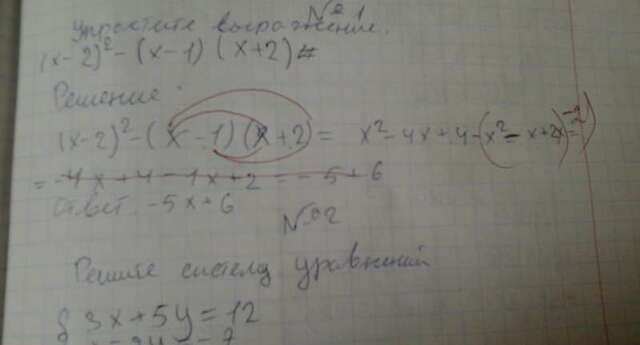 № 1
Упростите выражение.
(x-2)² - (x-1) (x+2)
Решение:
(x-2)² - (x-1) (x+2) = x² - 4x + 4 - (x² - x + 2x - 2) =
= -4x + 4 - 1x + 2 = -5 + 6
Ответ -5x+6
№ 2
Решите систему уравнений
{ 3x + 5y = 12